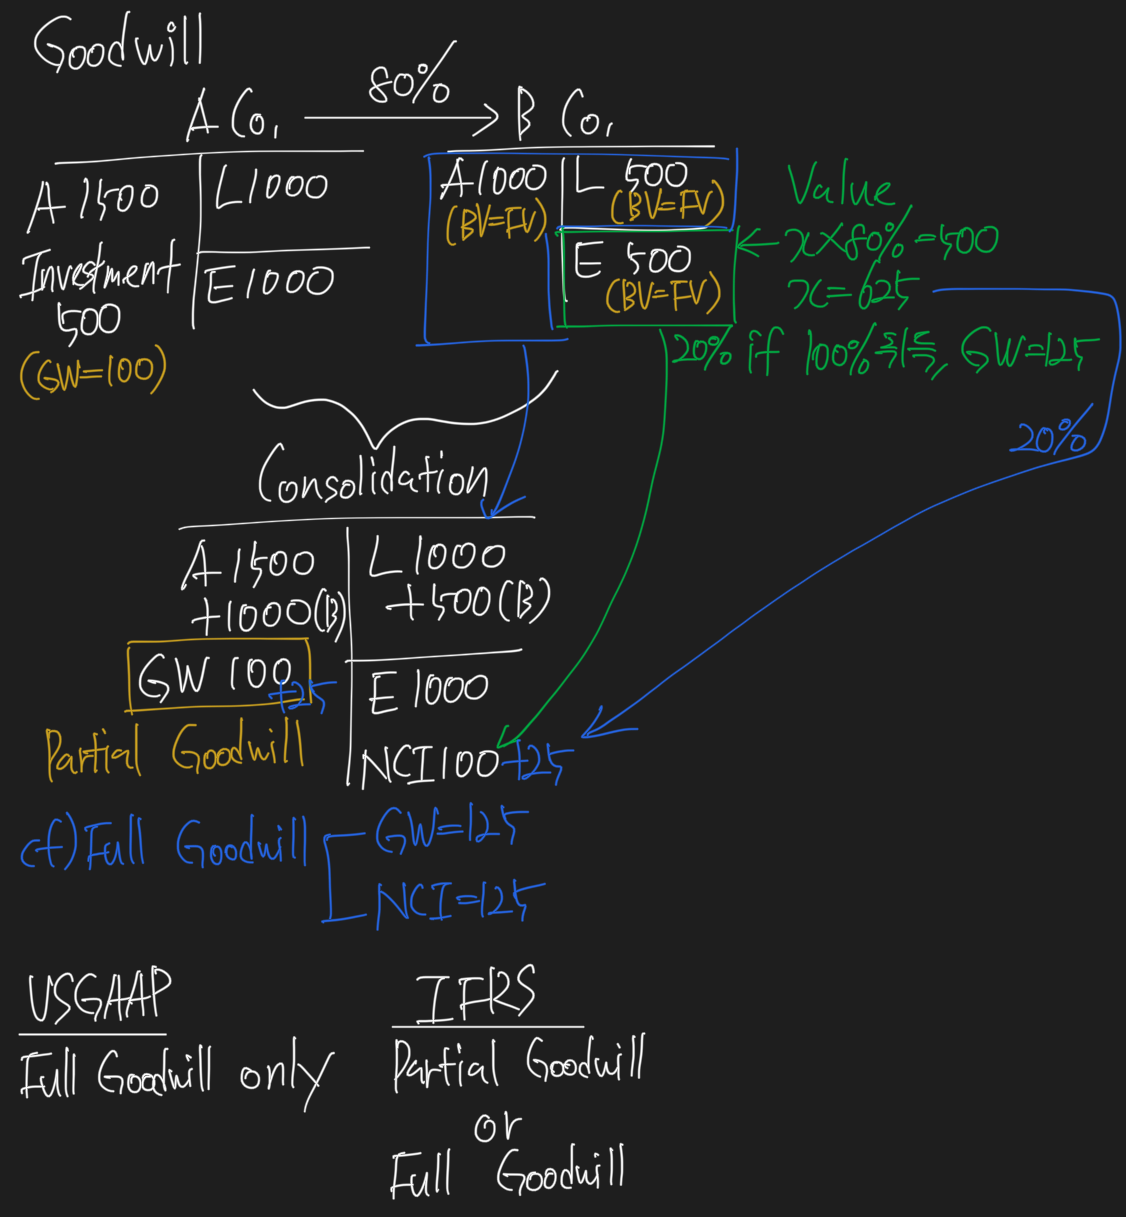 Goodwill
80%
A Co.
B Co.
A 1500
L 1000
Investment
500
E 1000
(GW=100)
A 1000
(BV=FV)
L 500
(BV=FV)
E 500
(BV=FV)
Value
x×80%=500
x=625
20%
if 100%취득, GW=125
20%
Consolidation
A 1500
+1000(B)
L 1000
+500(B)
GW 100
+25
E 1000
Partial Goodwill
NCI 100
+25
cf) Full Goodwill
GW=125
NCI=125
USGAAP
Full Goodwill only
IFRS
Partial Goodwill
or
Full Goodwill